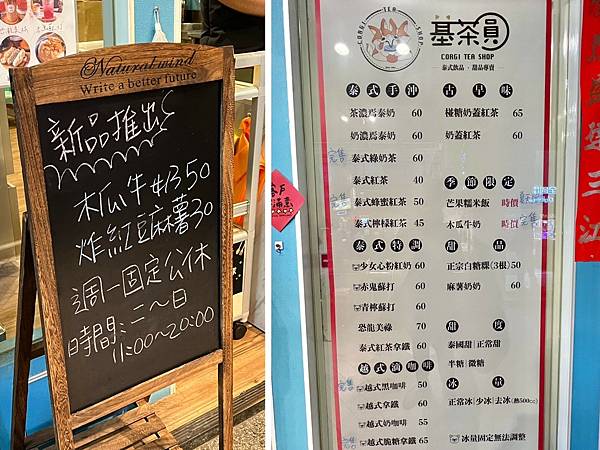 Natural wind
Write a better future
新品推出
木瓜牛奶50
炸紅豆麻薯30
週一固定公休
時間:二~日
11:00~20:00
CORGI TEA SHOP
基茶員
CORGI TEA SHOP
泰式飲品·甜品專賣
泰式手沖
茶濃爲泰奶 60
奶濃爲泰奶 60
完售 泰式綠奶茶 60
泰式紅茶 40
泰式蜂蜜紅茶 50
泰式檸檬紅茶 45
泰式特調
少女心粉紅奶 60
赤鬼蘇打 60
青檸蘇打 60
恐龍美祿 70
泰式紅茶拿鐵 60
越式滴咖啡
完售 越式黑咖啡 50
越式拿鐵 60
越式奶咖啡 55
越式脆糖拿鐵 65
古早味
椪糖奶蓋紅茶 65
奶蓋紅茶 60
季節限定
芒果糯米飯 時價
木瓜牛奶 時價
完售
甜品
正宗白糖粿(3根) 50
麻薯奶奶 60
甜度
泰國甜|正常甜
半糖|微糖
冰量
正常冰|少冰|去冰(熱500cc)
冰量固定無法調整